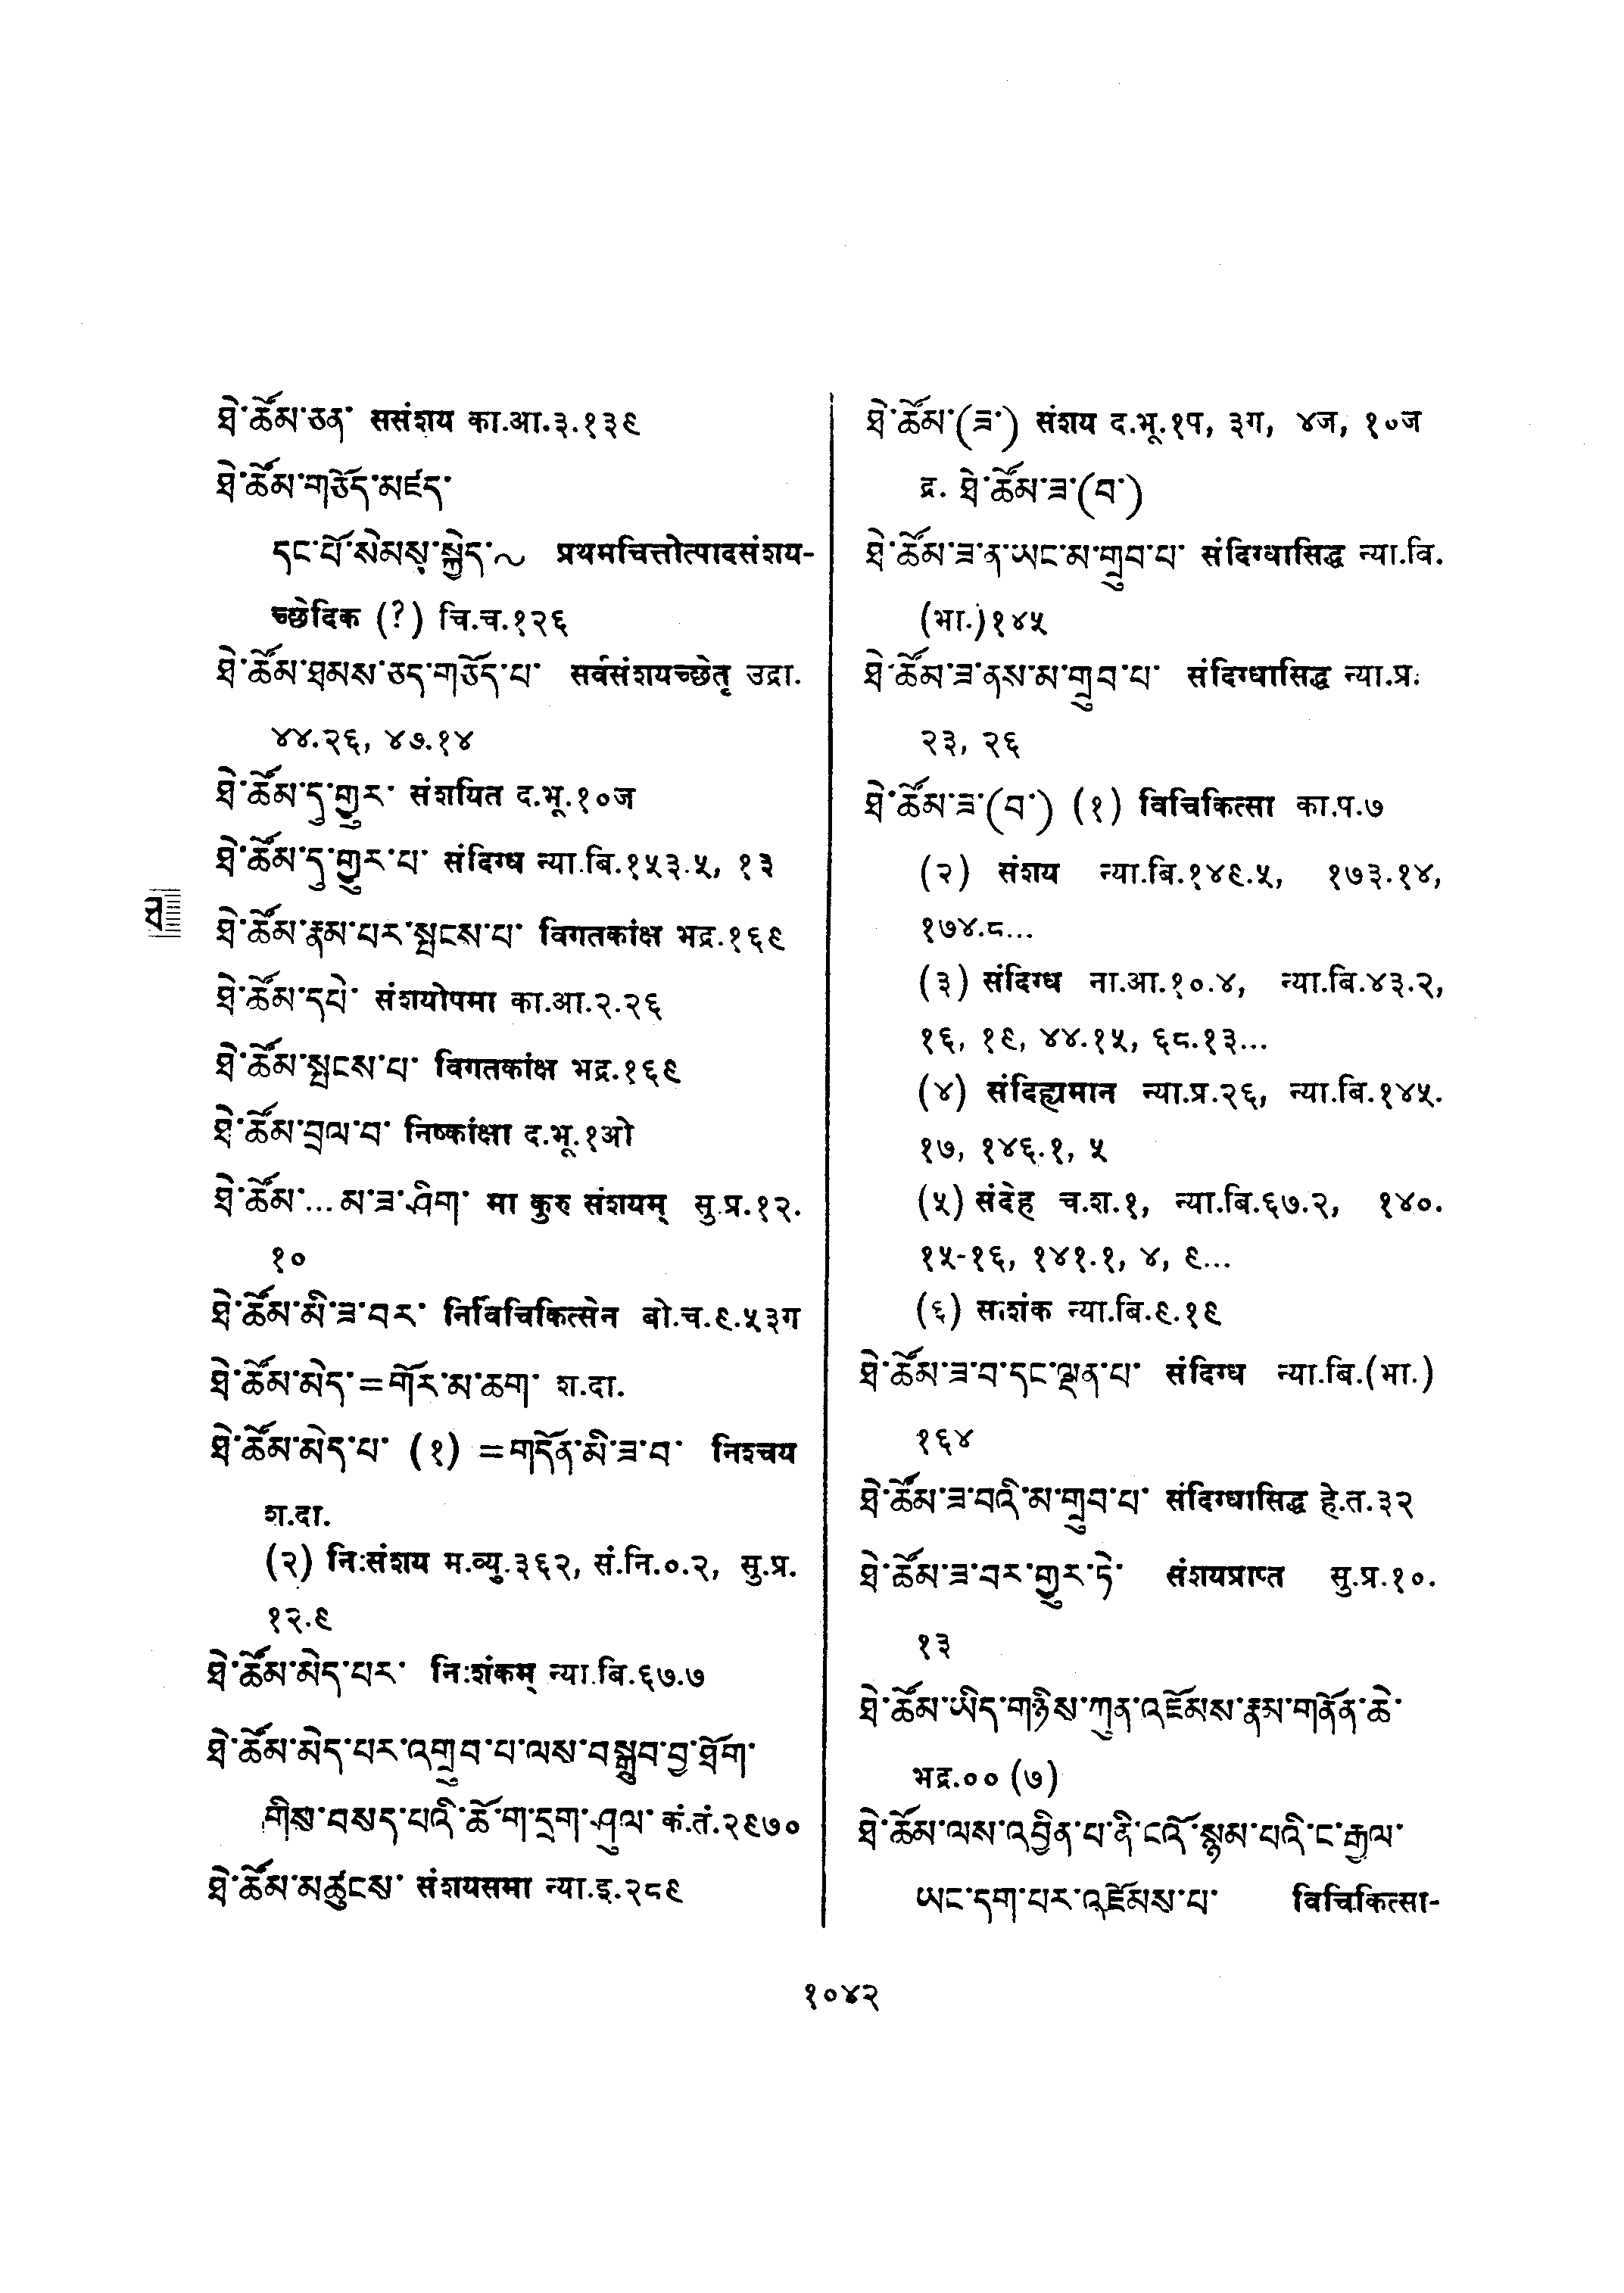 ཐེ་ཚོམ་ཅན་ ससंशय का.आ.३.१३९
ཐེ་ཚོམ་གཅོད་མཛད་
དང་པོ་སེམས་སྐྱེད་~ प्रथमचित्तोत्पादसंशय-
च्छेदिक (?) चि.च.१२६
ཐེ་ཚོམ་ཐམས་ཅད་གཅོད་པ་ सर्वसंशयच्छेतृ उद्रा.
४४.२६, ४७.१४
ཐེ་ཚོམ་དུ་གྱུར་ संशयित द.भू.१०ज
ཐེ་ཚོམ་དུ་གྱུར་པ་ संदिग्ध न्या.बि.१५३.५, १३
ཐེ་ཚོམ་རྣམ་པར་སྤངས་པ་ विगतकांक्ष भद्र.१६९
ཐེ་ཚོམ་དཔེ་ संशयोपमा का.आ.२.२६
ཐེ་ཚོམ་སྤངས་པ་ विगतकांक्ष भद्र.१६९
ཐེ་ཚོམ་བྲལ་བ་ निष्कांक्षा द.भू.१ओ
ཐེ་ཚོམ་...མ་ཟ་ཤིག་ मा कुरु संशयम् सु.प्र.१२.
१०
ཐེ་ཚོམ་མི་ཟ་བར་ निर्विचिकित्सेन बो.च.९.५३ग
ཐེ་ཚོམ་མེད་=གོར་མ་ཆག་ श.दा.
ཐེ་ཚོམ་མེད་པ་ (१) =གདོན་མི་ཟ་བ་ निश्चय
श.दा.
(२) निःसंशय म.व्यु.३६२, सं.नि.०.२, सु.प्र.
१२.९
ཐེ་ཚོམ་མེད་པར་ निःशंकम् न्या.बि.६७.७
ཐེ་ཚོམ་མེད་པར་འགྲུབ་པ་ལས་བསྒྲུབ་བྱ་ཐོག་
གིས་བསད་པའི་ཆོ་ག་དྲག་ཤུལ་ कं.तं.२९७०
ཐེ་ཚོམ་མཚུངས་ संशयसमा न्या.इ.२८९
ཐ
ཐེ་ཚོམ་(ཟ་) संशय द.भू.१प, ३ग, ४ज, १०ज
द्र. ཐེ་ཚོམ་ཟ་(བ་)
ཐེ་ཚོམ་ཟ་ན་ཡང་མ་གྲུབ་པ་ संदिग्धासिद्ध न्या.बि.
(भा.)१४५
ཐེ་ཚོམ་ཟ་ནས་མ་གྲུབ་པ་ संदिग्धासिद्ध न्या.प्र.
२३, २६
ཐེ་ཚོམ་ཟ་(བ་) (१) विचिकित्सा का.प.७
(२) संशय न्या.बि.१४९.५, १७३.१४,
१७४.८...
(३) संदिग्ध ना.आ.१०.४, न्या.बि.४३.२,
१६, १९, ४४.१५, ६८.१३...
(४) संदिह्यमान न्या.प्र.२६, न्या.बि.१४५.
१७, १४६.१, ५
(५) संदेह च.श.१, न्या.बि.६७.२, १४०.
१५-१६, १४१.१, ४, ९...
(६) साशंक न्या.बि.९.१९
ཐེ་ཚོམ་ཟ་བ་དང་ལྡན་པ་ संदिग्ध न्या.बि.(भा.)
१६४
ཐེ་ཚོམ་ཟ་བའི་མ་གྲུབ་པ་ संदिग्धासिद्ध हे.त.३२
ཐེ་ཚོམ་ཟ་བར་གྱུར་ཏེ་ संशयप्राप्त सु.प्र.१०.
१३
ཐེ་ཚོམ་ཡིད་གཉིས་ཀུན་འཇོམས་རྣམ་གནོན་ཆེ་
भद्र.०० (७)
ཐེ་ཚོམ་ལས་འབྱིན་པ་ནི་ངའོ་སྙམ་པའི་ང་རྒྱལ་
ཡང་དག་པར་འཇོམས་པ་ विचिकित्सा-
१०४२